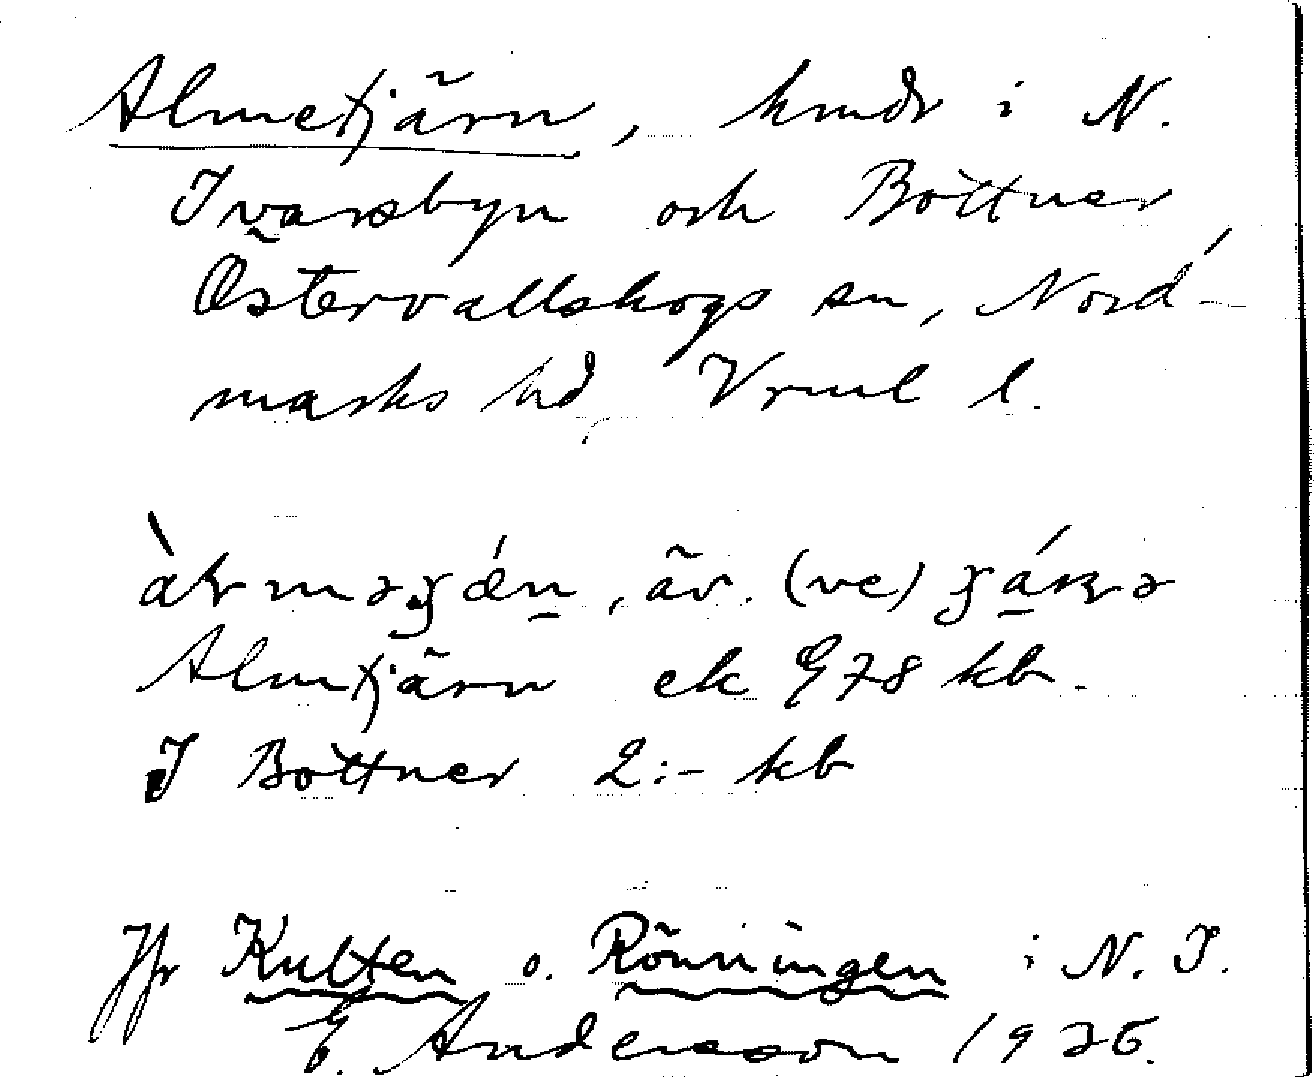 Almetjärn, hmdr i N.
Ivarsbyn och Böttner,
Östervallskogs sn, Nord-
marks hd, Vrml l.
äv. (ve)
Almtjärn ek G78 kb.
I Böttner 2:- kb
Jfr Kulten o. Rönningen i N. I.
E. Andersson 1926.